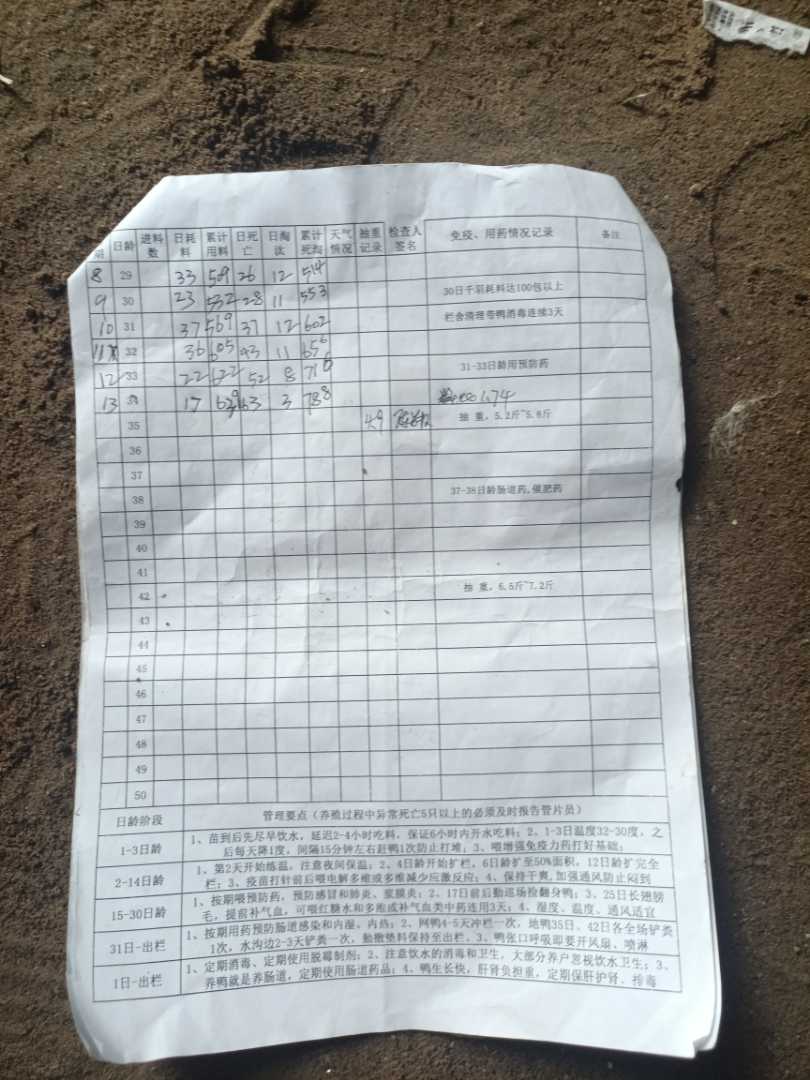 期 日龄 进料数 日耗料 累计用料 日死亡 日淘汰 累计死淘 天气情况 抽重记录 检查人签名 免疫、用药情况记录 备注
8 29 33 509 26 12 514
9 30 23 532 28 11 553 30日千羽耗料达100包以上
10 31 37 569 37 12 602 栏舍清理带鸭消毒连续3天
11 32 36 605 43 11 656
12 33 22 622 52 8 716 31-33日龄用预防药
13 34 17 639 63 3 788 1.74
35 4.9 抽 重，5.2斤~5.6斤
36
37
38 37-38日龄肠道药,催肥药
39
40
41
42 抽 重，6.5斤~7.2斤
43
44
45
46
47
48
49
50
日龄阶段 管理要点（养殖过程中异常死亡5只以上的必须及时报告管片员）
1-3日龄 1、苗到后先尽早饮水，延迟2-4小时吃料，保证6小时内开水吃料；2、1-3日温度32-30度，之
后每天降1度，间隔15分钟左右赶鸭1次防止打堆；3、喂增强免疫力药打好基础；
2-14日龄 1、第2天开始炼温，注意夜间保温；2、4日龄开始扩栏，6日龄扩至50%面积，12日龄扩完全
栏；3、疫苗打针前后喂电解多维或多维减少应激反应；4、保持干爽,加强通风防止闷到
15-30日龄 1、按期喂预防药，预防感冒和肺炎、浆膜炎；2、17日前后勤巡场捡翻身鸭；3、25日长翅膀
毛，提前补气血，可喂红糖水和多维或补气血类中药连用3天；4、湿度、温度、通风适宜
31日-出栏 1、按期用药预防肠道感染和内湿、内热；2、网鸭4-5天冲栏一次，地鸭35日、42日各全场铲粪
1次，水沟边2-3天铲粪一次，勤撒垫料保持至出栏。3、鸭张口呼吸即要开风扇、喷淋
1日-出栏 1、定期消毒、定期使用脱霉制剂；2、注意饮水的消毒和卫生，大部分养户忽视饮水卫生；3、
养鸭就是养肠道，定期使用肠道药品；4、鸭生长快，肝肾负担重，定期保肝护肾、排毒